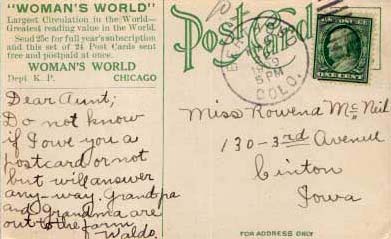 "WOMAN'S WORLD"
Largest Circulation in the World—
Greatest reading value in the World.
Send 25c for full year's subscription
and this set of 24 Post Cards sent
free and postpaid at once.
WOMAN'S WORLD
Dept K. P. CHICAGO
Post Card
COLO.
PM
ONE CENT
Dear Aunt;
Do not know
if I owe you a
postcard or not
but will answer
any-way. Grandpa
and Grandma are
out to the farm
Waldo.
Miss Rowena McNeil
130-3rd Avenue
Cinton
Iowa
FOR ADDRESS ONLY